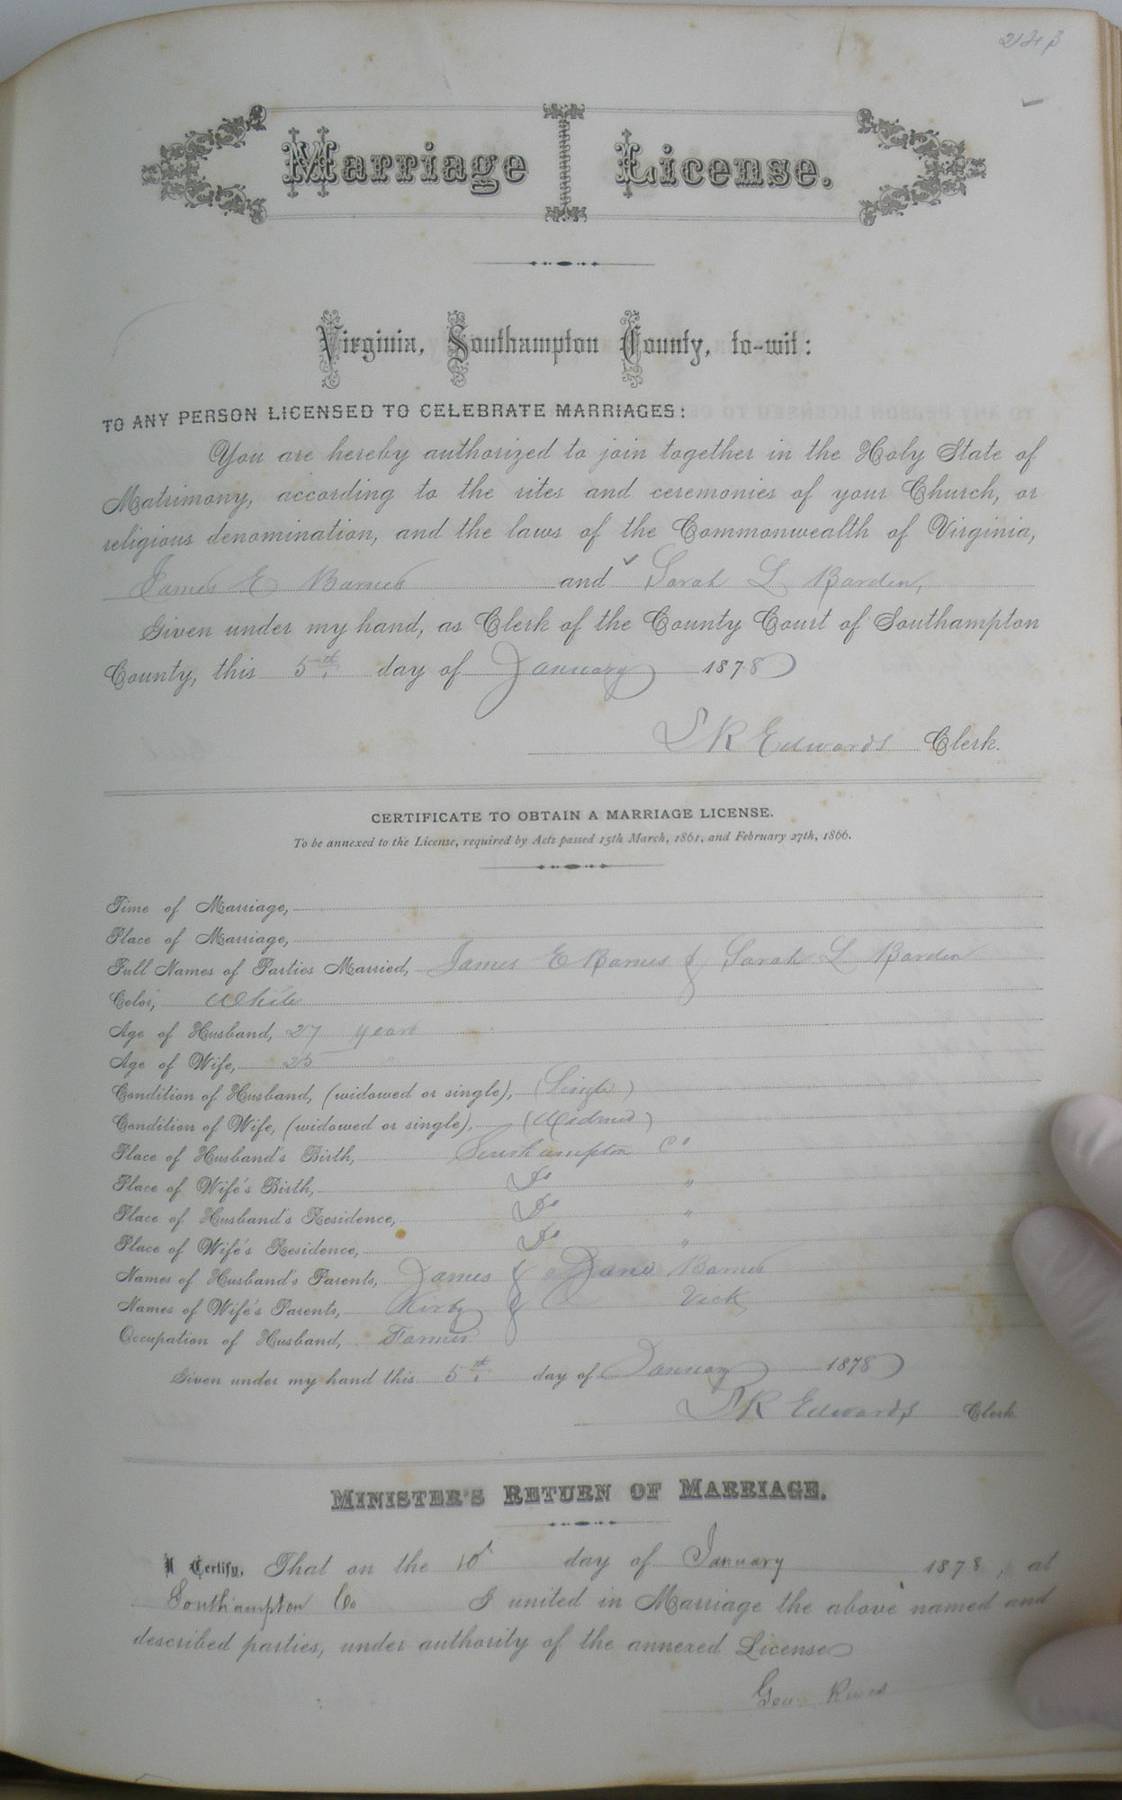 Marriage License.
Virginia, Southampton County, to-wit:
TO ANY PERSON LICENSED TO CELEBRATE MARRIAGES:
You are hereby authorized to join together in the Holy State of
Matrimony, according to the rites and ceremonies of your Church, or
religious denomination, and the laws of the Commonwealth of Virginia,
James E Barnes and Sarah L Barden,
Given under my hand, as Clerk of the County Court of Southampton
County, this 5th day of January 1878
L R Edwards Clerk.
CERTIFICATE TO OBTAIN A MARRIAGE LICENSE.
To be annexed to the License, required by Acts passed 15th March, 1861, and February 27th, 1866.
Time of Marriage,
Place of Marriage,
Full Names of Parties Married, James E Barnes & Sarah L Barden
Color, White
Age of Husband, 27 years
Age of Wife, 25 "
Condition of Husband, (widowed or single), (Single)
Condition of Wife, (widowed or single), (Widowed)
Place of Husband's Birth, Southampton Co
Place of Wife's Birth, Do "
Place of Husband's Residence, Do "
Place of Wife's Residence, Do "
Names of Husband's Parents, James & Jane Barnes
Names of Wife's Parents, Kirby & Vick
Occupation of Husband, Farmer
Given under my hand this 5th day of January 1878
L R Edwards Clerk
MINISTER'S RETURN OF MARRIAGE.
I Certify, That on the 10th day of January 1878, at
Southampton Co I united in Marriage the above named and
described parties, under authority of the annexed License
Geo.